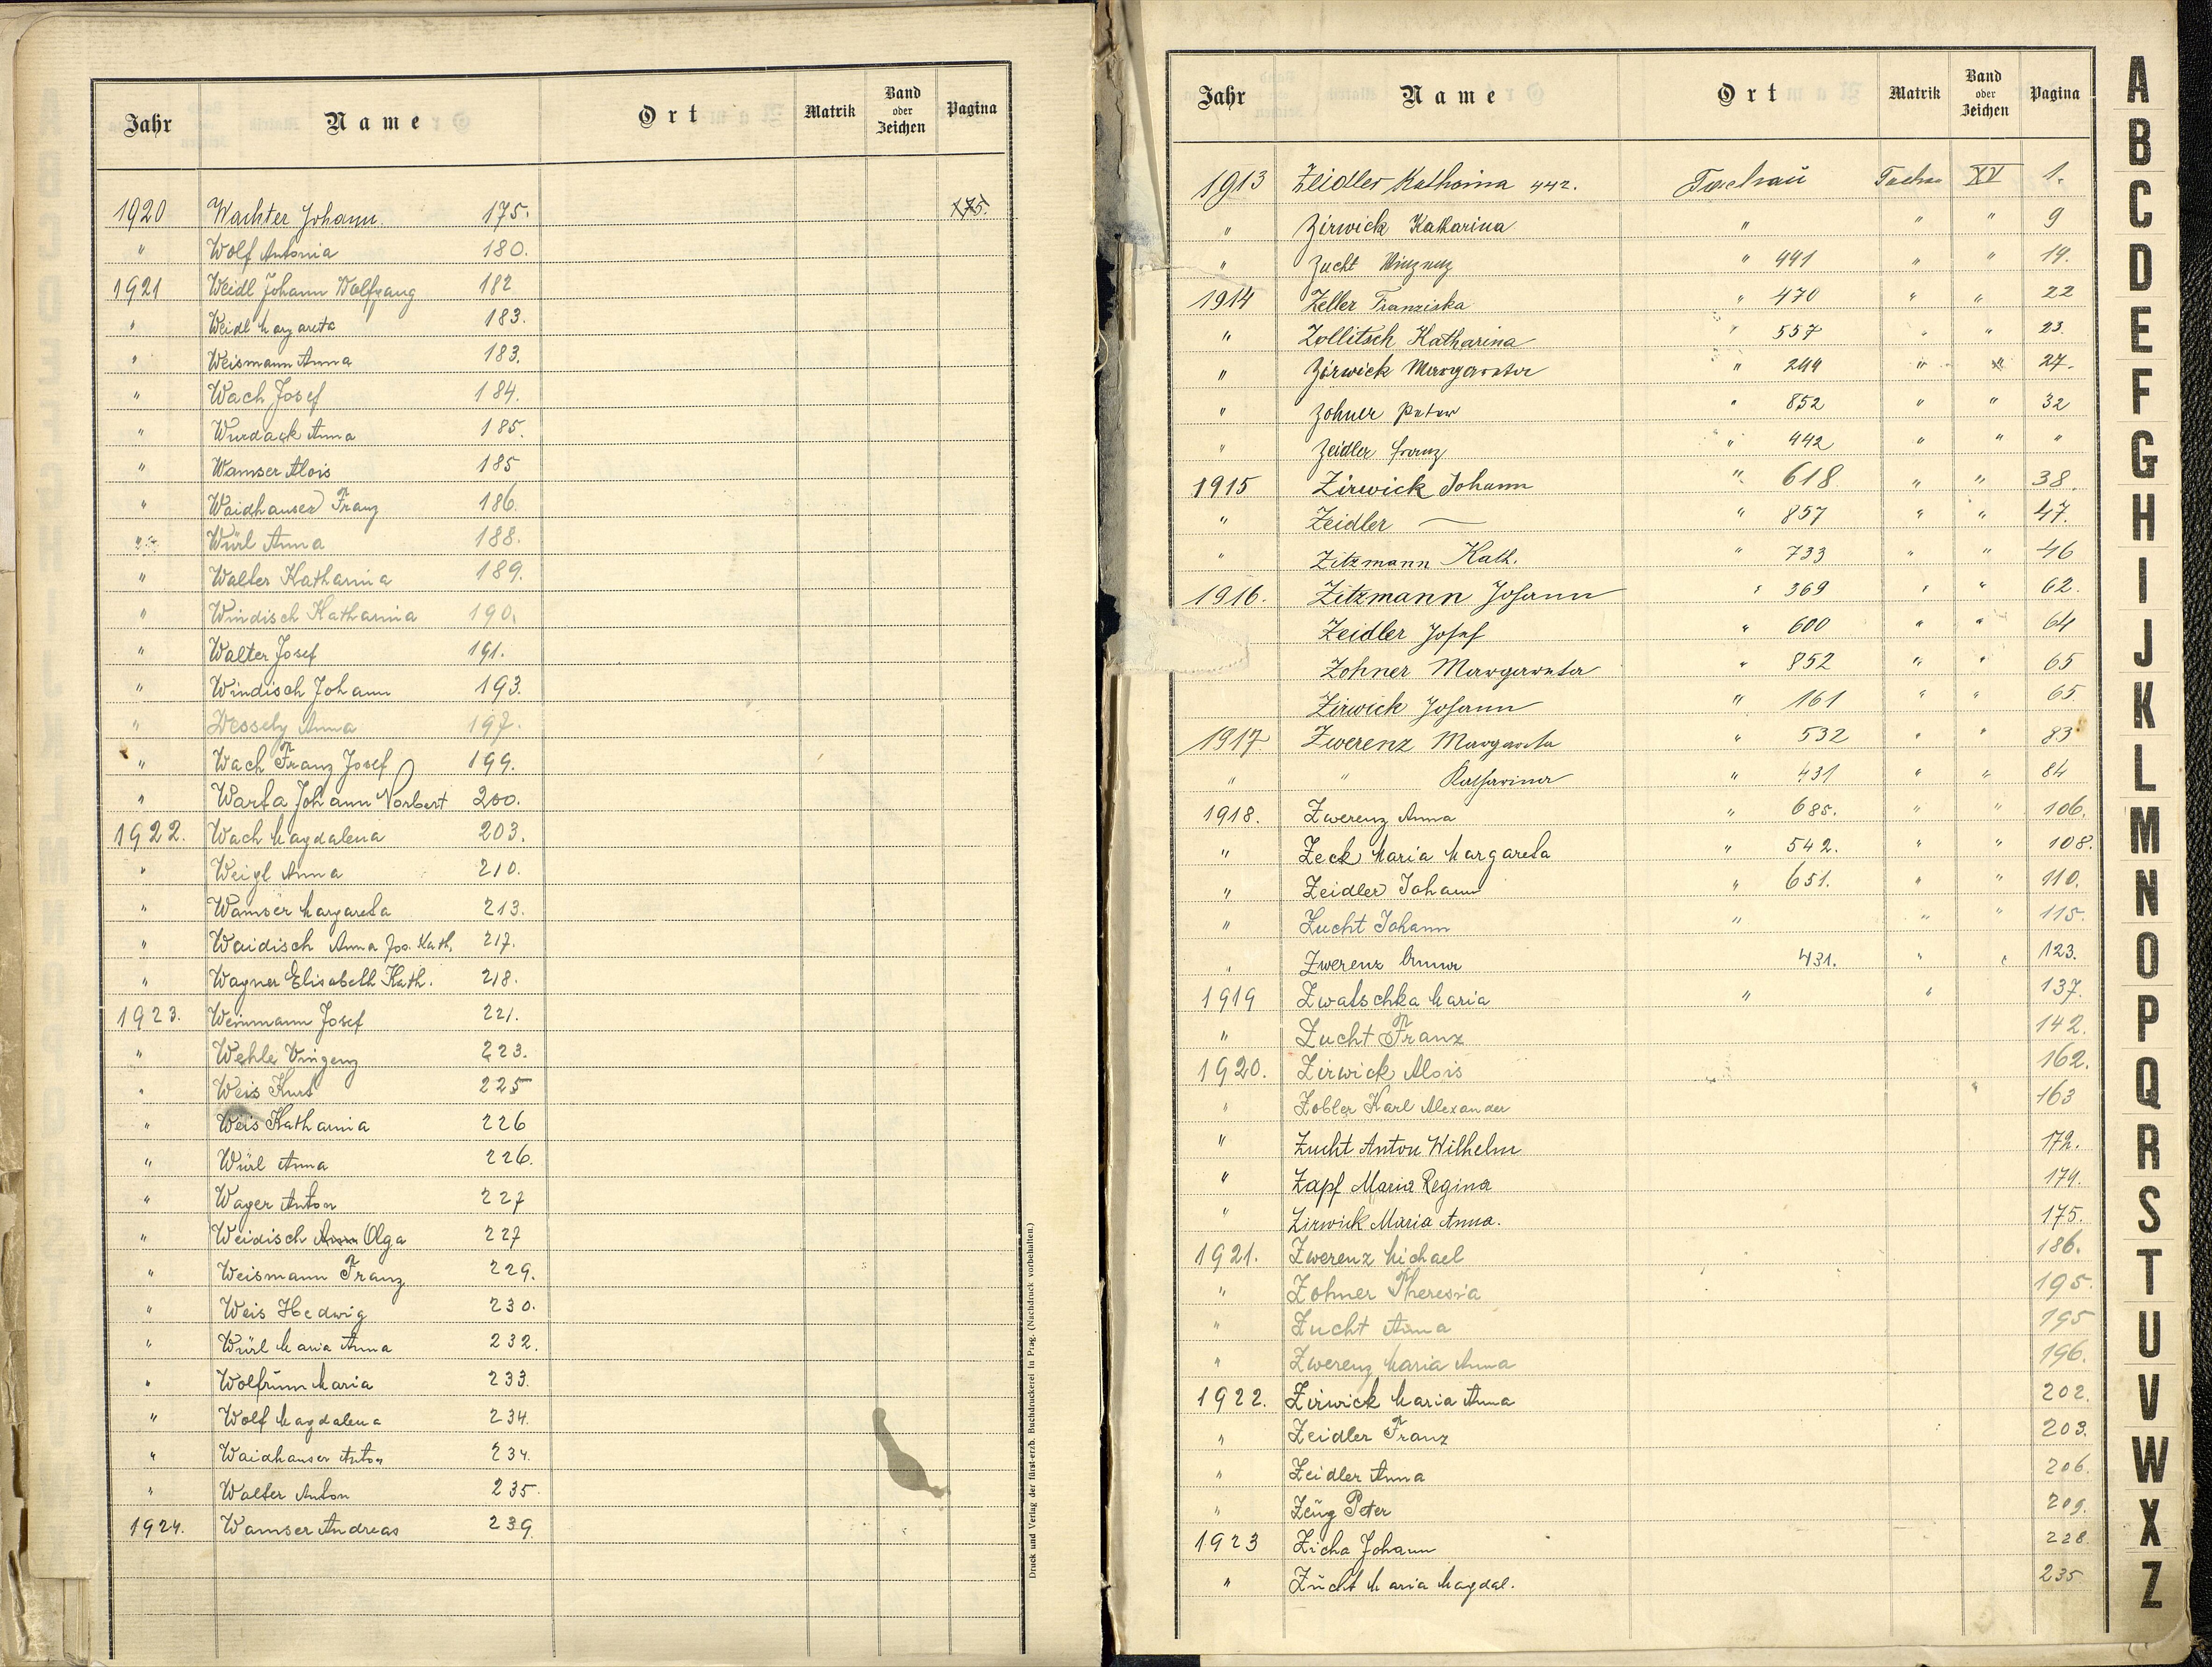 Jahr Name Ort Matrik Band oder Zeichen Pagina
1920 Wachter Johann. 175. 175.
" Wolf Antonia 180.
1921 Weidl Johann Wolfgang 182
" Weidl Margareta 183.
" Weismann Anna 183.
" Wach Josef 184.
" Wurdack Anna 185.
" Wamser Alois 185
" Waidhauser Franz 186.
" Würl Anna 188.
" Walter Katharina 189.
" Windisch Katharina 190.
" Walter Josef 191.
" Windisch Johann 193.
" Wessely Anna 197.
" Wach Franz Josef 199.
" Warta Johann Norbert 200.
1922. Wach Magdalena 203.
" Weigl Anna 210.
" Wamser Margareta 213.
" Waidisch Anna Jos. Kath. 217.
" Wagner Elisabeth Kath. 218.
1923. Weinmann Josef 221.
" Wehle Vinzenz 223.
" Weis Kurt 225
" Weis Katharina 226
" Würl Anna 226.
" Wager Anton 227
" Weidisch Anna Olga 227
" Weismann Franz 229.
" Weis Hedwig 230.
" Würl Maria Anna 232.
" Wolfrum Maria 233.
" Wolf Magdalena 234.
" Waidhauser Anton 234.
" Walter Anton 235.
1924. Wamser Andreas 239.
Druck und Verlag der fürst-erzb. Buchdruckerei in Prag. (Nachdruck vorbehalten.)
Jahr Name Ort Matrik Band oder Zeichen Pagina
1913 Zeidler Katharina 442. Tachau Tachau XV 1.
" Zirwick Katharina " " " 9
" Zucht Vinzenz " 441 " " 19.
1914 Zeller Franziska " 470 " " 22
" Zollitsch Katharina " 557 " " 23.
" Zirwick Margareta " 244 " " 27.
" Zohner Peter " 852 " " 32
" Zeidler Franz " 442 " " "
1915 Zirwick Johann " 618 " " 38.
" Zeidler — " 857 " " 47.
" Zitzmann Kath. " 733 " " 46
1916. Zitzmann Johann " 369 " " 62.
Zeidler Josef " 600 " " 64
Zohner Margareta " 852 " " 65
Zirwick Johann " 161 " " 65.
1917 Zwerenz Margareta " 532 " " 83
" " Katharina " 431 " " 84
1918. Zwerenz Anna " 685. " " 106.
" Zeck Maria Margareta " 542. " " 108.
" Zeidler Johann " 651. " " 110.
" Zucht Johann " " " 115.
" Zwerenz Anna 431. " " 123.
1919 Zwatschka Maria " " 137.
" Zucht Franz 142.
1920. Zirwick Alois 162.
" Zobler Karl Alexander 163
" Zucht Anton Wilhelm 172.
" Zapf Maria Regina 174.
" Zirwick Maria Anna. 175.
1921. Zwerenz Michael 186.
" Zohner Theresia 195.
" Zucht Anna 195
" Zwerenz Maria Anna 196.
1922. Zirwick Maria Anna 202.
" Zeidler Franz 203.
" Zeidler Anna 206.
" Zeug Peter 209.
1923 Zicha Johann 228.
" Zucht Maria Magdal. 235
A
B
C
D
E
F
G
H
I
J
K
L
M
N
O
P
Q
R
S
T
U
V
W
X
Z